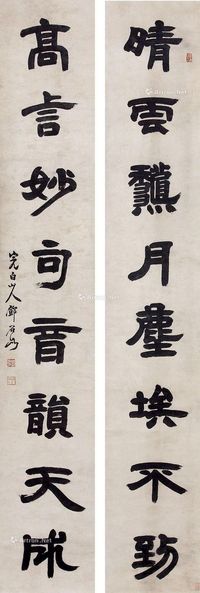 晴雲黐月塵埃不到
高言妙句音韻天成
完白山人鄧石如